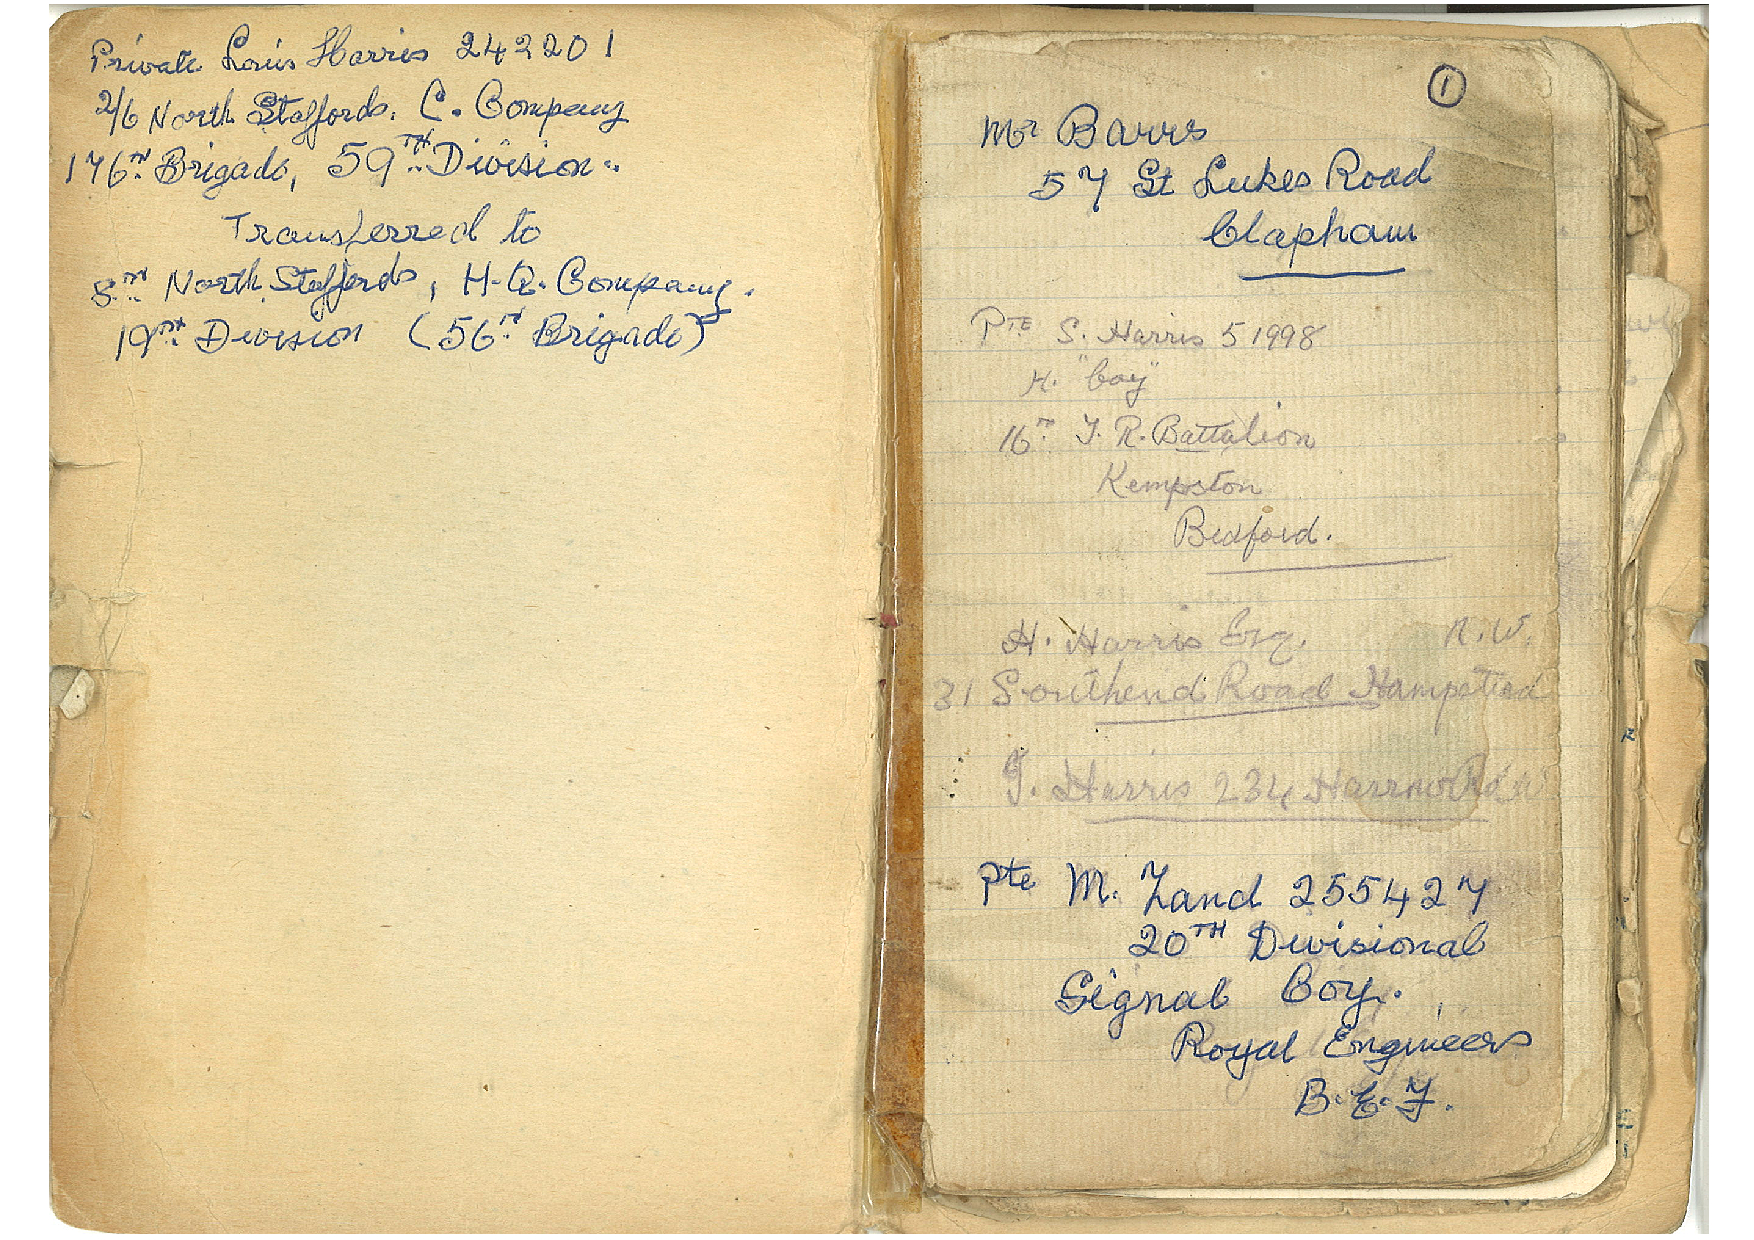 Private Louis Harris 242201
2/6 North Staffords, C. Company
176TH Brigade, 59TH Division
Transferred to
8TH North Staffords, H-Q. Company.
19TH Division (56TH Brigade)
1
Mr Barrs
57 St Lukes Road
Clapham
PTE S. Harris 51998
H. "Coy"
16TH T. R. Battalion
Kempston
Bedford.
H. Harris Esq. N.W.
31 Southend Road Hampstead
J. Harris 234 Harrow Rd W
Pte M. Zand 255427
20TH Divisional
Signal Coy.
Royal Engineers
B.E.F.